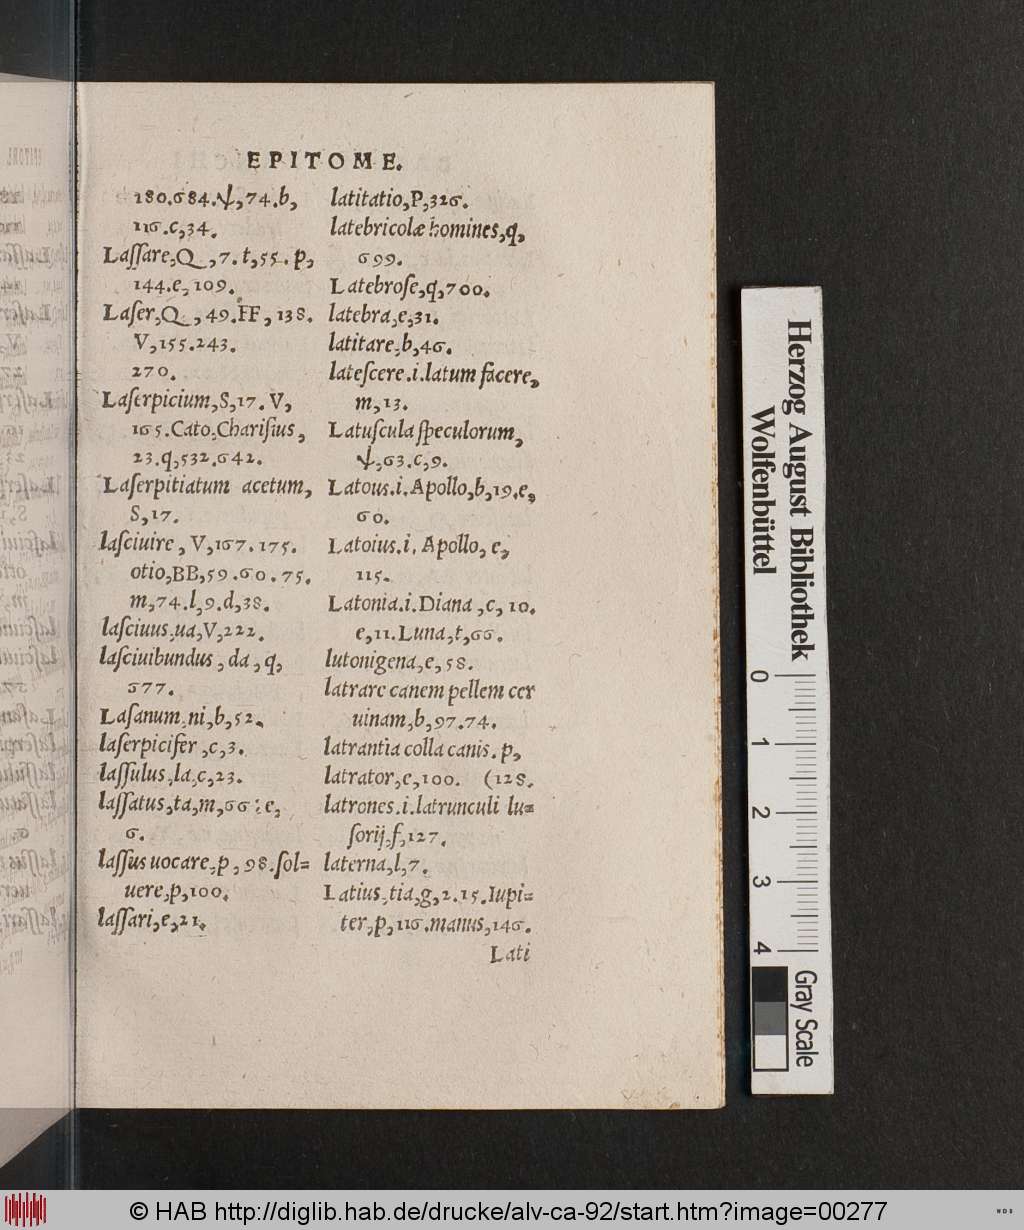 EPITOME.
180.684.ψ,74.b,
116.c,34.
Laſſare,Q,7.t,55.p,
144.e,109.
Laſer,Q,49.FF,138.
V,155.243.
270.
Laſerpicium,S,17.V,
165.Cato.Chariſius,
23.q,532.642.
Laſerpitiatum acetum,
S,17.
laſciuire, V,167.175.
otio,BB,59.60.75.
m,74.l,9.d,38.
laſciuus.ua,V,222.
laſciuibundus, da, q,
677.
Laſanum.ni,b,52.
laſerpicifer,c,3.
laſſulus,la,c,23.
laſſatus,ta,m,66:e,
6.
laſſus uocare,p,98.ſol=
uere,p,100.
laſſari,e,21.
latitatio,P,326.
latebricolæ homines,q,
699.
Latebroſe,q,700.
latebra,e,31.
latitare,b,46.
lateſcere.i.latum facere,
m,13.
Latuſcula ſpeculorum,
ψ,63.c,9.
Latous.i.Apollo,b,19.e,
60.
Latoius.i. Apollo, e,
115.
Latonia.i.Diana,c,10.
e,11.Luna,t,66.
lutonigena,e,58.
latrare canem pellem cer
uinam,b,97.74.
latrantia colla canis. p,
latrator,e,100. (128.
latrones.i.latrunculi lu=
ſorij,f,127.
laterna,l,7.
Latius,tia,g,2.15.Iupi=
ter,p,116.manus,146.
Lati
Herzog August Bibliothek
Wolfenbüttel
0 1 2 3 4
Gray Scale
© HAB http://diglib.hab.de/drucke/alv-ca-92/start.htm?image=00277